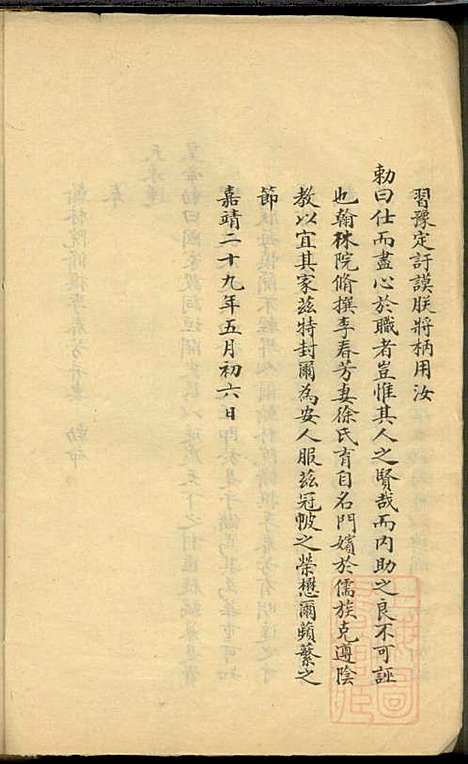 習豫定訏謨朕將柄用汝
勅曰仕而盡心於職者豈惟其人之賢哉而內助之良不可誣
也翰林院脩撰李春芳妻徐氏育自名門嬪於儒族克遵陰
教以宜其家茲特封爾為安人服茲冠帔之榮懋爾蘋蘩之
節
嘉靖二十九年五月初六日